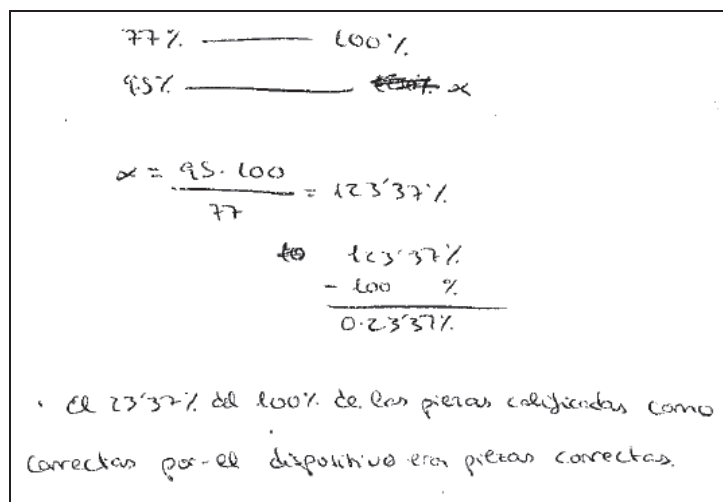 77% — 100%
95% — x
x = 95 · 100 / 77 = 123'37%
123'37%
- 100 %
0 23'37%
· El 23'37% del 100% de las piezas calificadas como
correctas por el dispositivo eran piezas correctas.